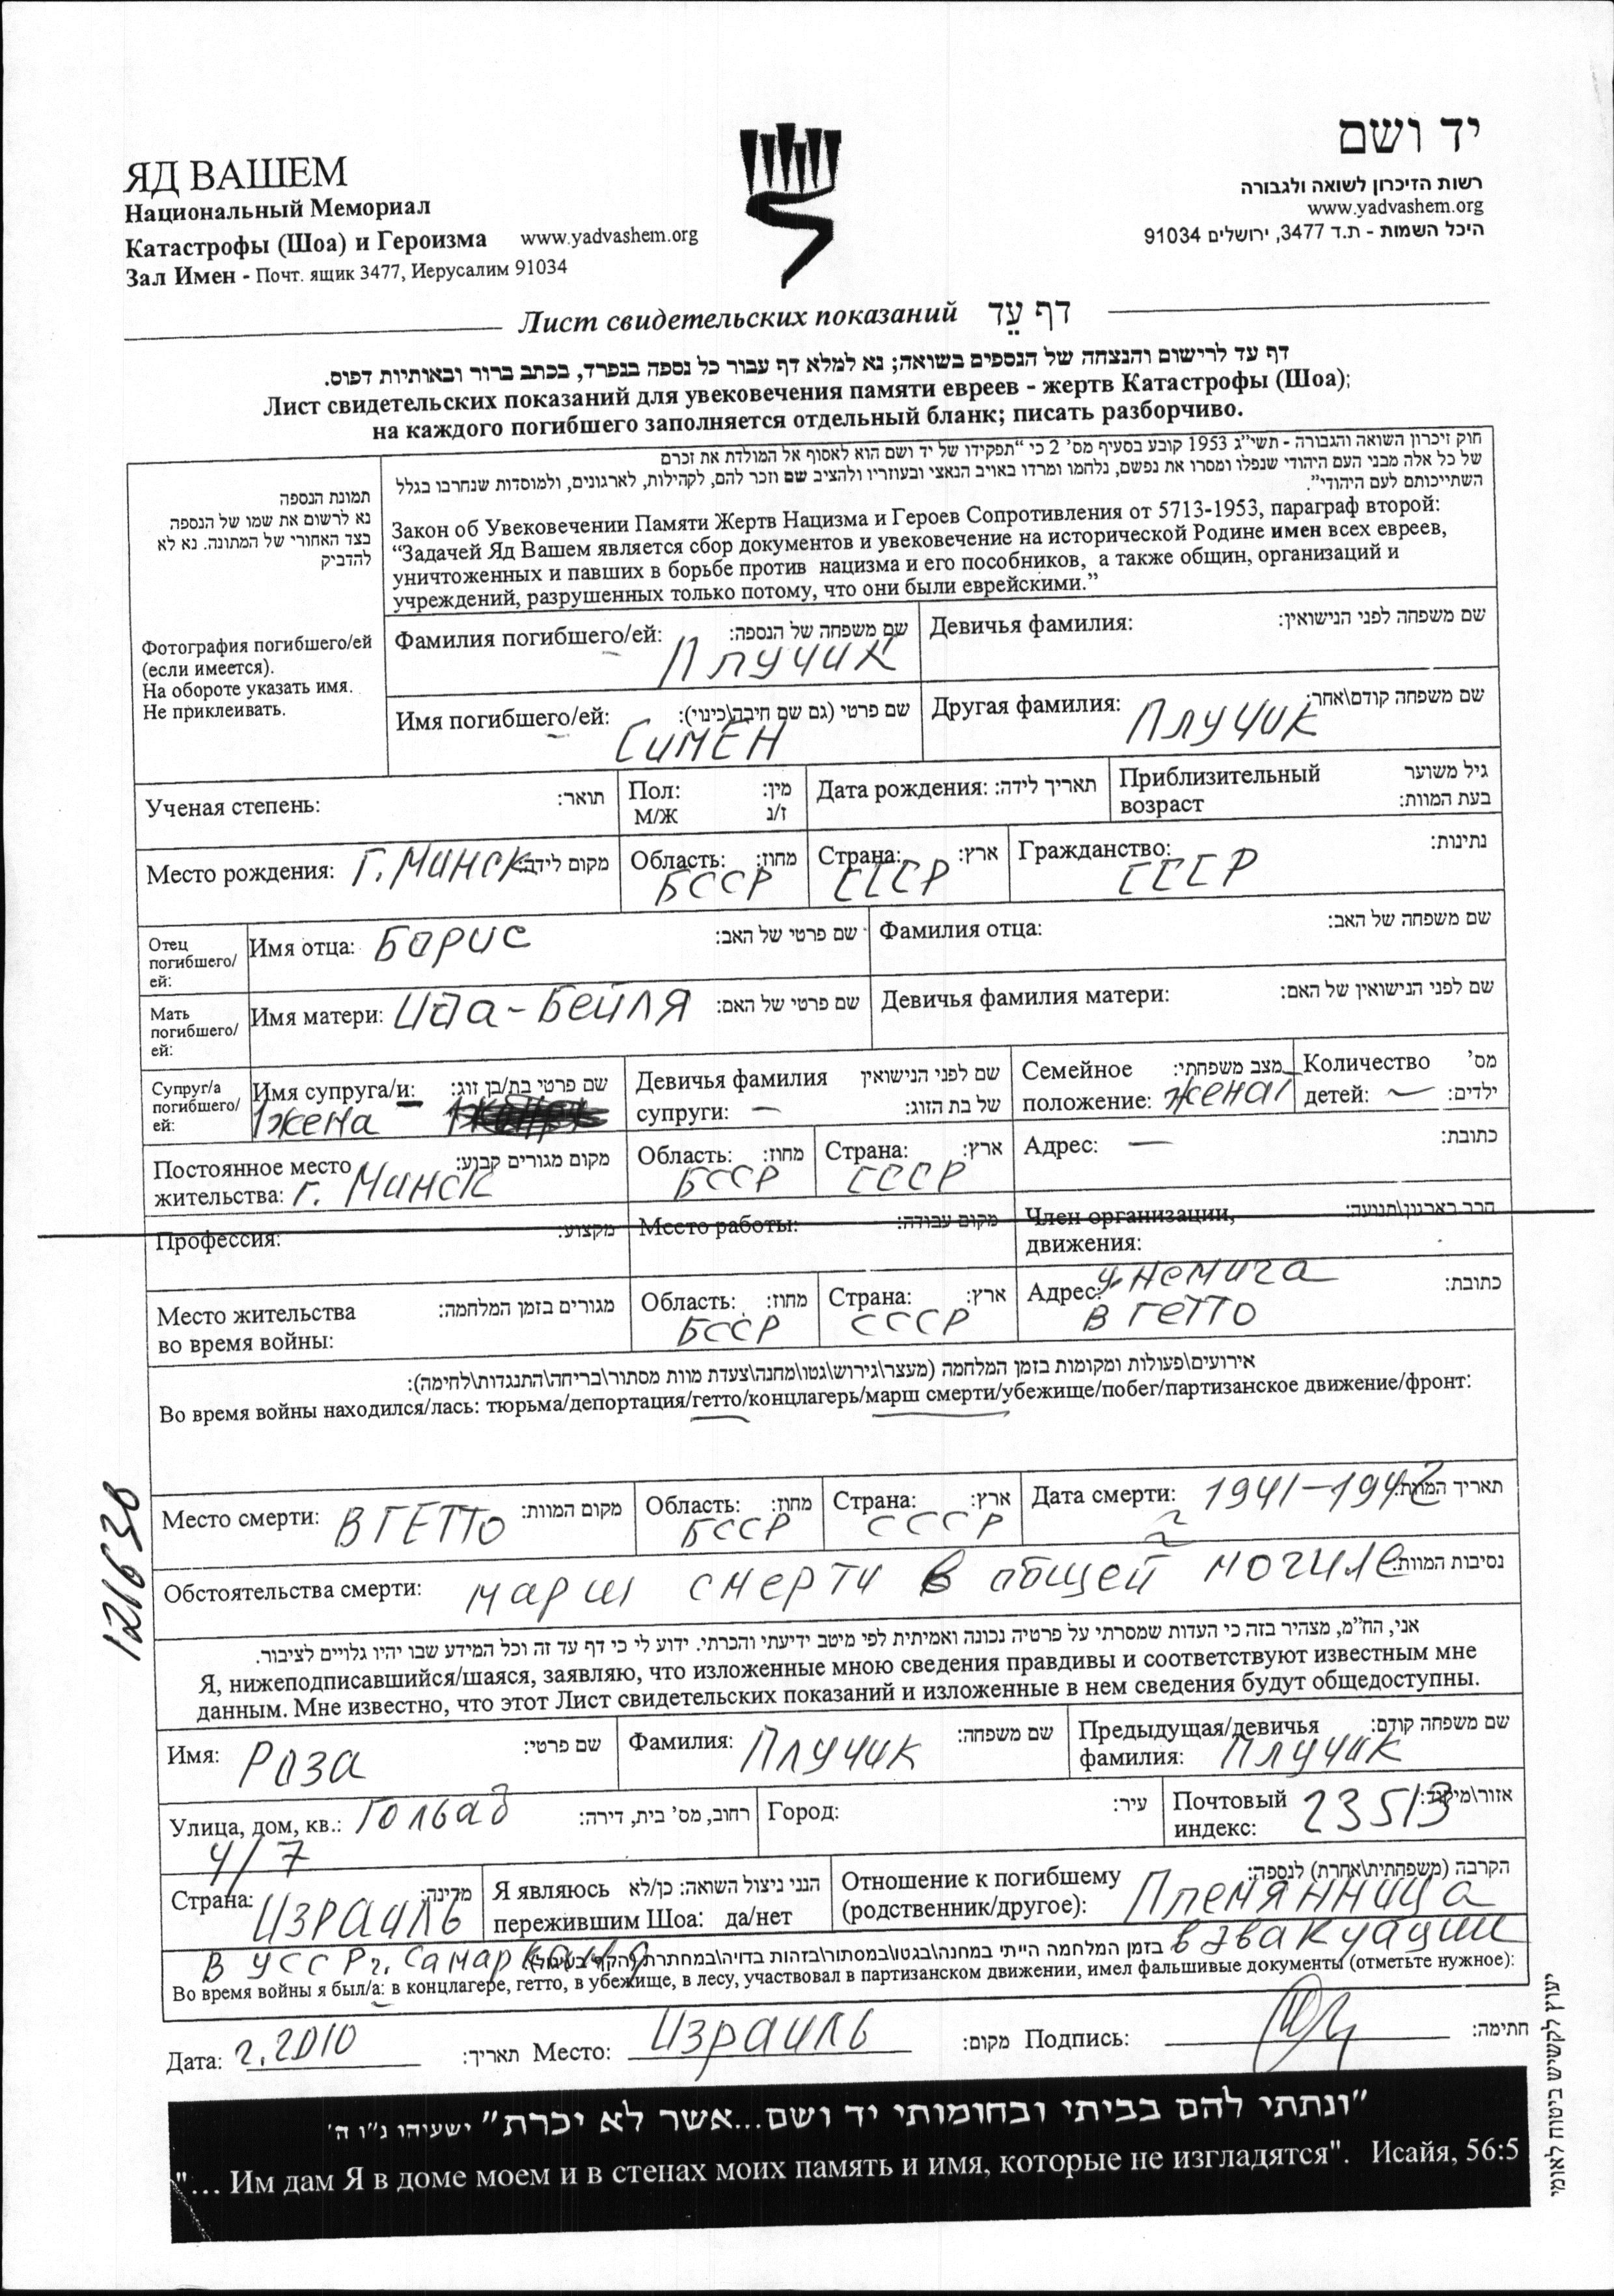 יד ושם
רשות הזיכרון לשואה ולגבורה
www.yadvashem.org
היכל השמות - ת.ד 3477, ירושלים 91034
ЯД ВАШЕМ
Национальный Мемориал
Катастрофы (Шоа) и Героизма www.yadvashem.org
Зал Имен - Почт. ящик 3477, Иерусалим 91034
Лист свидетельских показаний דף עֵד
דף עד לרישום והנצחה של הנספים בשואה; נא למלא דף עבור כל נספה בנפרד, בכתב ברור ובאותיות דפוס.
Лист свидетельских показаний для увековечения памяти евреев - жертв Катастрофы (Шоа);
на каждого погибшего заполняется отдельный бланк; писать разборчиво.
חוק זיכרון השואה והגבורה - תשי״ג 1953 קובע בסעיף מס' 2 כי "תפקידו של יד ושם הוא לאסוף אל המולדת את זכרם
של כל אלה מבני העם היהודי שנפלו ומסרו את נפשם, נלחמו ומרדו באויב הנאצי ובעוזריו ולהציב שם וזכר להם, לקהילות, לארגונים, ולמוסדות שנחרבו בגלל
השתייכותם לעם היהודי".
Закон об Увековечении Памяти Жертв Нацизма и Героев Сопротивления от 5713-1953, параграф второй:
"Задачей Яд Вашем является сбор документов и увековечение на исторической Родине имен всех евреев,
уничтоженных и павших в борьбе против нацизма и его пособников, а также общин, организаций и
учреждений, разрушенных только потому, что они были еврейскими."
תמונת הנספה
נא לרשום את שמו של הנספה
בצד האחורי של המתונה. נא לא
להדביק
Фотография погибшего/ей
(если имеется).
На обороте указать имя.
Не приклеивать.
Фамилия погибшего/ей: שם משפחה של הנספה: Плучик
Девичья фамилия: שם משפחה לפני הנישואין:
Имя погибшего/ей: שם פרטי (גם שם חיבה\כינוי): Симён
Другая фамилия: שם משפחה קודם\אחר: Плучик
Ученая степень: תואר:
Пол: מין:
М/Ж ז/נ
Дата рождения: תאריך לידה:
Приблизительный גיל משוער
возраст בעת המוות:
Место рождения: г. Минск מקום לידה:
Область: מחוז: БССР
Страна: ארץ: СССР
Гражданство: נתינות: СССР
Отец
погибшего/
ей:
Имя отца: Борис שם פרטי של האב:
Фамилия отца: שם משפחה של האב:
Мать
погибшего/
ей:
Имя матери: Ида-Бейля שם פרטי של האם:
Девичья фамилия матери: שם לפני הנישואין של האם:
Супруг/а
погибшего/
ей:
Имя супруга/и: שם פרטי בת/בן זוג:
жена
Девичья фамилия שם לפני הנישואין
супруги: — של בת הזוג:
Семейное מצב משפחתי:
положение: женат
Количество מס'
детей: — ילדים:
Постоянное место מקום מגורים קבוע:
жительства: г. Минск
Область: מחוז: БССР
Страна: ארץ: СССР
Адрес: — כתובת:
Профессия: מקצוע:
Место работы: מקום עבודה:
Член организации, חבר בארגון\תנועה:
движения:
Место жительства מגורים בזמן המלחמה:
во время войны:
Область: מחוז: БССР
Страна: ארץ: СССР
Адрес: Немига כתובת:
в гетто
אירועים\פעולות ומקומות בזמן המלחמה (מעצר\גירוש\גטו\מחנה\צעדת מוות מסתור\בריחה\התנגדות\לחימה):
Во время войны находился/лась: тюрьма/депортация/гетто/концлагерь/марш смерти/убежище/побег/партизанское движение/фронт:
Место смерти: в гетто מקום המוות:
Область: מחוז: БССР
Страна: ארץ: СССР
Дата смерти: 1941-1942 תאריך המוות:
Обстоятельства смерти: марш смерти в общей могиле נסיבות המוות:
121630
אני, הח״מ, מצהיר בזה כי העדות שמסרתי על פרטיה נכונה ואמיתית לפי מיטב ידיעתי והכרתי. ידוע לי כי דף עד זה וכל המידע שבו יהיו גלויים לציבור.
Я, нижеподписавшийся/шаяся, заявляю, что изложенные мною сведения правдивы и соответствуют известным мне
данным. Мне известно, что этот Лист свидетельских показаний и изложенные в нем сведения будут общедоступны.
Имя: Роза שם פרטי:
Фамилия: Плучик שם משפחה:
Предыдущая/девичья שם משפחה קודם:
фамилия: Плучик
Улица, дом, кв.: רחוב, מס' בית, דירה:
4/7
Город: עיר:
Почтовый 23513 אזור\מיקוד:
индекс:
Страна: Израиль מדינה:
Я являюсь הנני ניצול השואה: כן/לא
пережившим Шоа: да/нет
Отношение к погибшему הקרבה (משפחתית\אחרת) לנספה:
(родственник/другое): Племянница
בזמן המלחמה הייתי במחנה\בגטו\במסתור\בזהות בדויה\במחתרת в эвакуации
в УССР г. Самарканд
Во время войны я был/а: в концлагере, гетто, в убежище, в лесу, участвовал в партизанском движении, имел фальшивые документы (отметьте нужное):
Дата: г. 2010 תאריך: Место: Израиль מקום: Подпись: חתימה:
יעוץ לקשיש ביטוח לאומי
"ונתתי להם בביתי ובחומותי יד ושם...אשר לא יכרת" ישעיהו נ״ו ה'
"... Им дам Я в доме моем и в стенах моих память и имя, которые не изгладятся". Исайя, 56:5